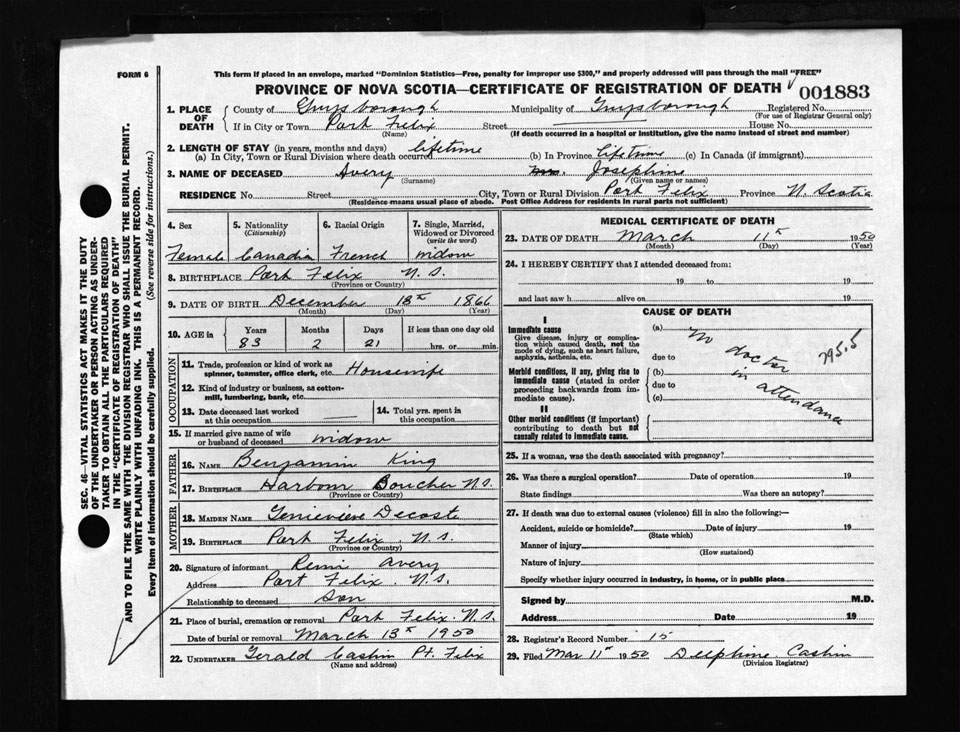 FORM 6
This form if placed in an envelope, marked "Dominion Statistics—Free, penalty for improper use $300," and properly addressed will pass through the mail "FREE"
PROVINCE OF NOVA SCOTIA—CERTIFICATE OF REGISTRATION OF DEATH
001883
1. PLACE OF DEATH
County of Guysborough Municipality of Guysborough Registered No.
(For use of Registrar General only)
If in City or Town Port Felix Street House No.
(Name) (If death occurred in a hospital or institution, give the name instead of street and number)
2. LENGTH OF STAY (in years, months and days)
(a) In City, Town or Rural Division where death occurred lifetime (b) In Province lifetime (c) In Canada (if immigrant)
3. NAME OF DECEASED Avery Josephine
(Surname) (Given name or names)
RESIDENCE No. Street City, Town or Rural Division Port Felix Province N. Scotia
(Residence means usual place of abode. Post Office Address for residents in rural parts not sufficient)
4. Sex 5. Nationality (Citizenship) 6. Racial Origin 7. Single, Married, Widowed or Divorced (write the word)
Female Canadian French widow
8. BIRTHPLACE Port Felix N.S.
(Province or Country)
9. DATE OF BIRTH December 18th 1866
(Month) (Day) (Year)
10. AGE in Years Months Days If less than one day old
83 2 21 hrs. or min.
OCCUPATION
11. Trade, profession or kind of work as spinner, teamster, office clerk, etc. Housewife
12. Kind of industry or business, as cotton-mill, lumbering, bank, etc.
13. Date deceased last worked at this occupation 14. Total yrs. spent in this occupation
15. If married give name of wife or husband of deceased widow
FATHER
16. NAME Benjamin King
17. BIRTHPLACE Harbour Boucher N.S.
(Province or Country)
MOTHER
18. MAIDEN NAME Genievieve Decoste
19. BIRTHPLACE Port Felix. N.S.
(Province or Country)
20. Signature of informant Remi Avery
Address Port Felix. N.S.
Relationship to deceased Son
21. Place of burial, cremation or removal Port Felix. N.S.
Date of burial or removal March 13th 1950
22. UNDERTAKER Gerald Cashin Pt. Felix
(Name and address)
MEDICAL CERTIFICATE OF DEATH
23. DATE OF DEATH March 11th 1950
(Month) (Day) (Year)
24. I HEREBY CERTIFY that I attended deceased from:
19 to 19
and last saw h alive on 19
CAUSE OF DEATH
I
Immediate cause
Give disease, injury or complication which caused death, not the mode of dying, such as heart failure, asphyxia, asthenia, etc.
Morbid conditions, if any, giving rise to immediate cause (stated in order proceeding backwards from immediate cause).
II
Other morbid conditions (if important) contributing to death but not causally related to immediate cause.
(a) No doctor in attendance
795.5
due to
(b)
due to
(c)
25. If a woman, was the death associated with pregnancy?
26. Was there a surgical operation? Date of operation 19
State findings Was there an autopsy?
27. If death was due to external causes (violence) fill in also the following:—
Accident, suicide or homicide? Date of injury 19
(State which)
Manner of injury
(How sustained)
Nature of injury
Specify whether injury occurred in industry, in home, or in public place
Signed by M.D.
Address Date 19
28. Registrar's Record Number 15
29. Filed Mar 11th 1950 Delphine Cashin
(Division Registrar)
SEC. 46—VITAL STATISTICS ACT MAKES IT THE DUTY
OF THE UNDERTAKER OR PERSON ACTING AS UNDER-
TAKER TO OBTAIN ALL THE PARTICULARS REQUIRED
IN THE "CERTIFICATE OF REGISTRATION OF DEATH"
AND TO FILE THE SAME WITH THE DIVISION REGISTRAR WHO SHALL ISSUE THE BURIAL PERMIT.
WRITE PLAINLY WITH UNFADING INK. THIS IS A PERMANENT RECORD.
Every item of information should be carefully supplied. (See reverse side for instructions.)